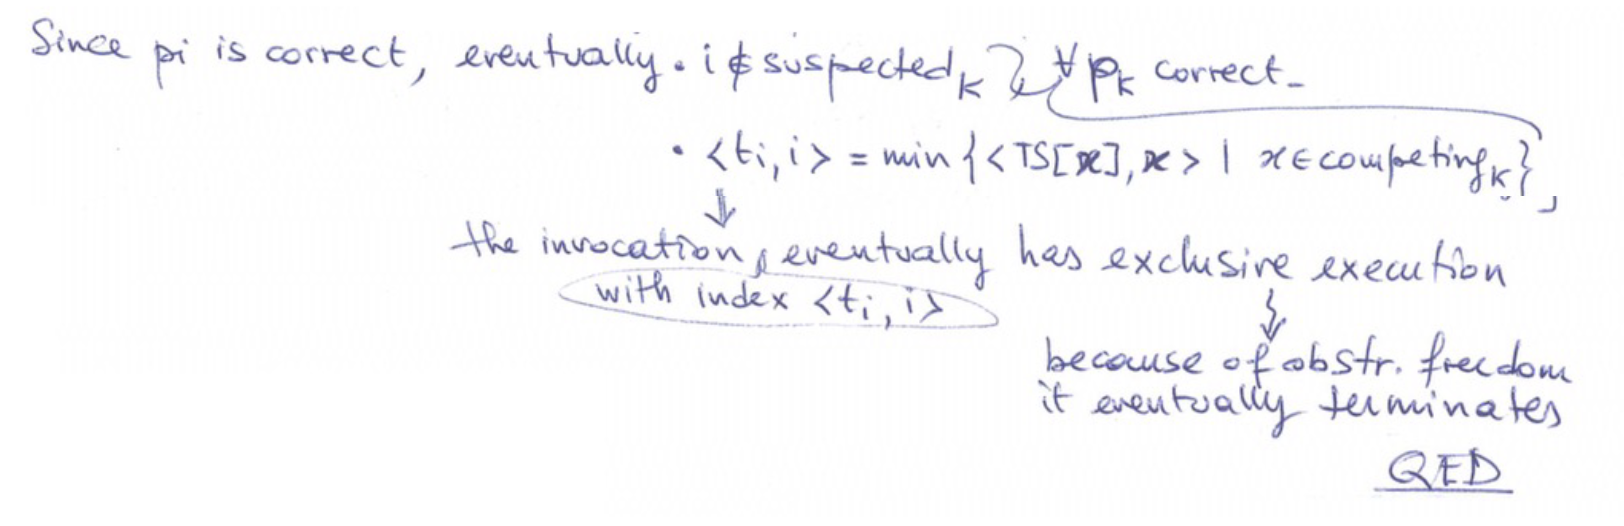 Since pi is correct, eventually • i ∉ suspected_k } ∀ p_k correct_
• <ti, i> = min {<TS[x], x> | x ∈ competing_k}
⇓
the invocation, eventually has exclusive execution
with index <ti, i>
because of obstr. freedom
it eventually terminates
QED